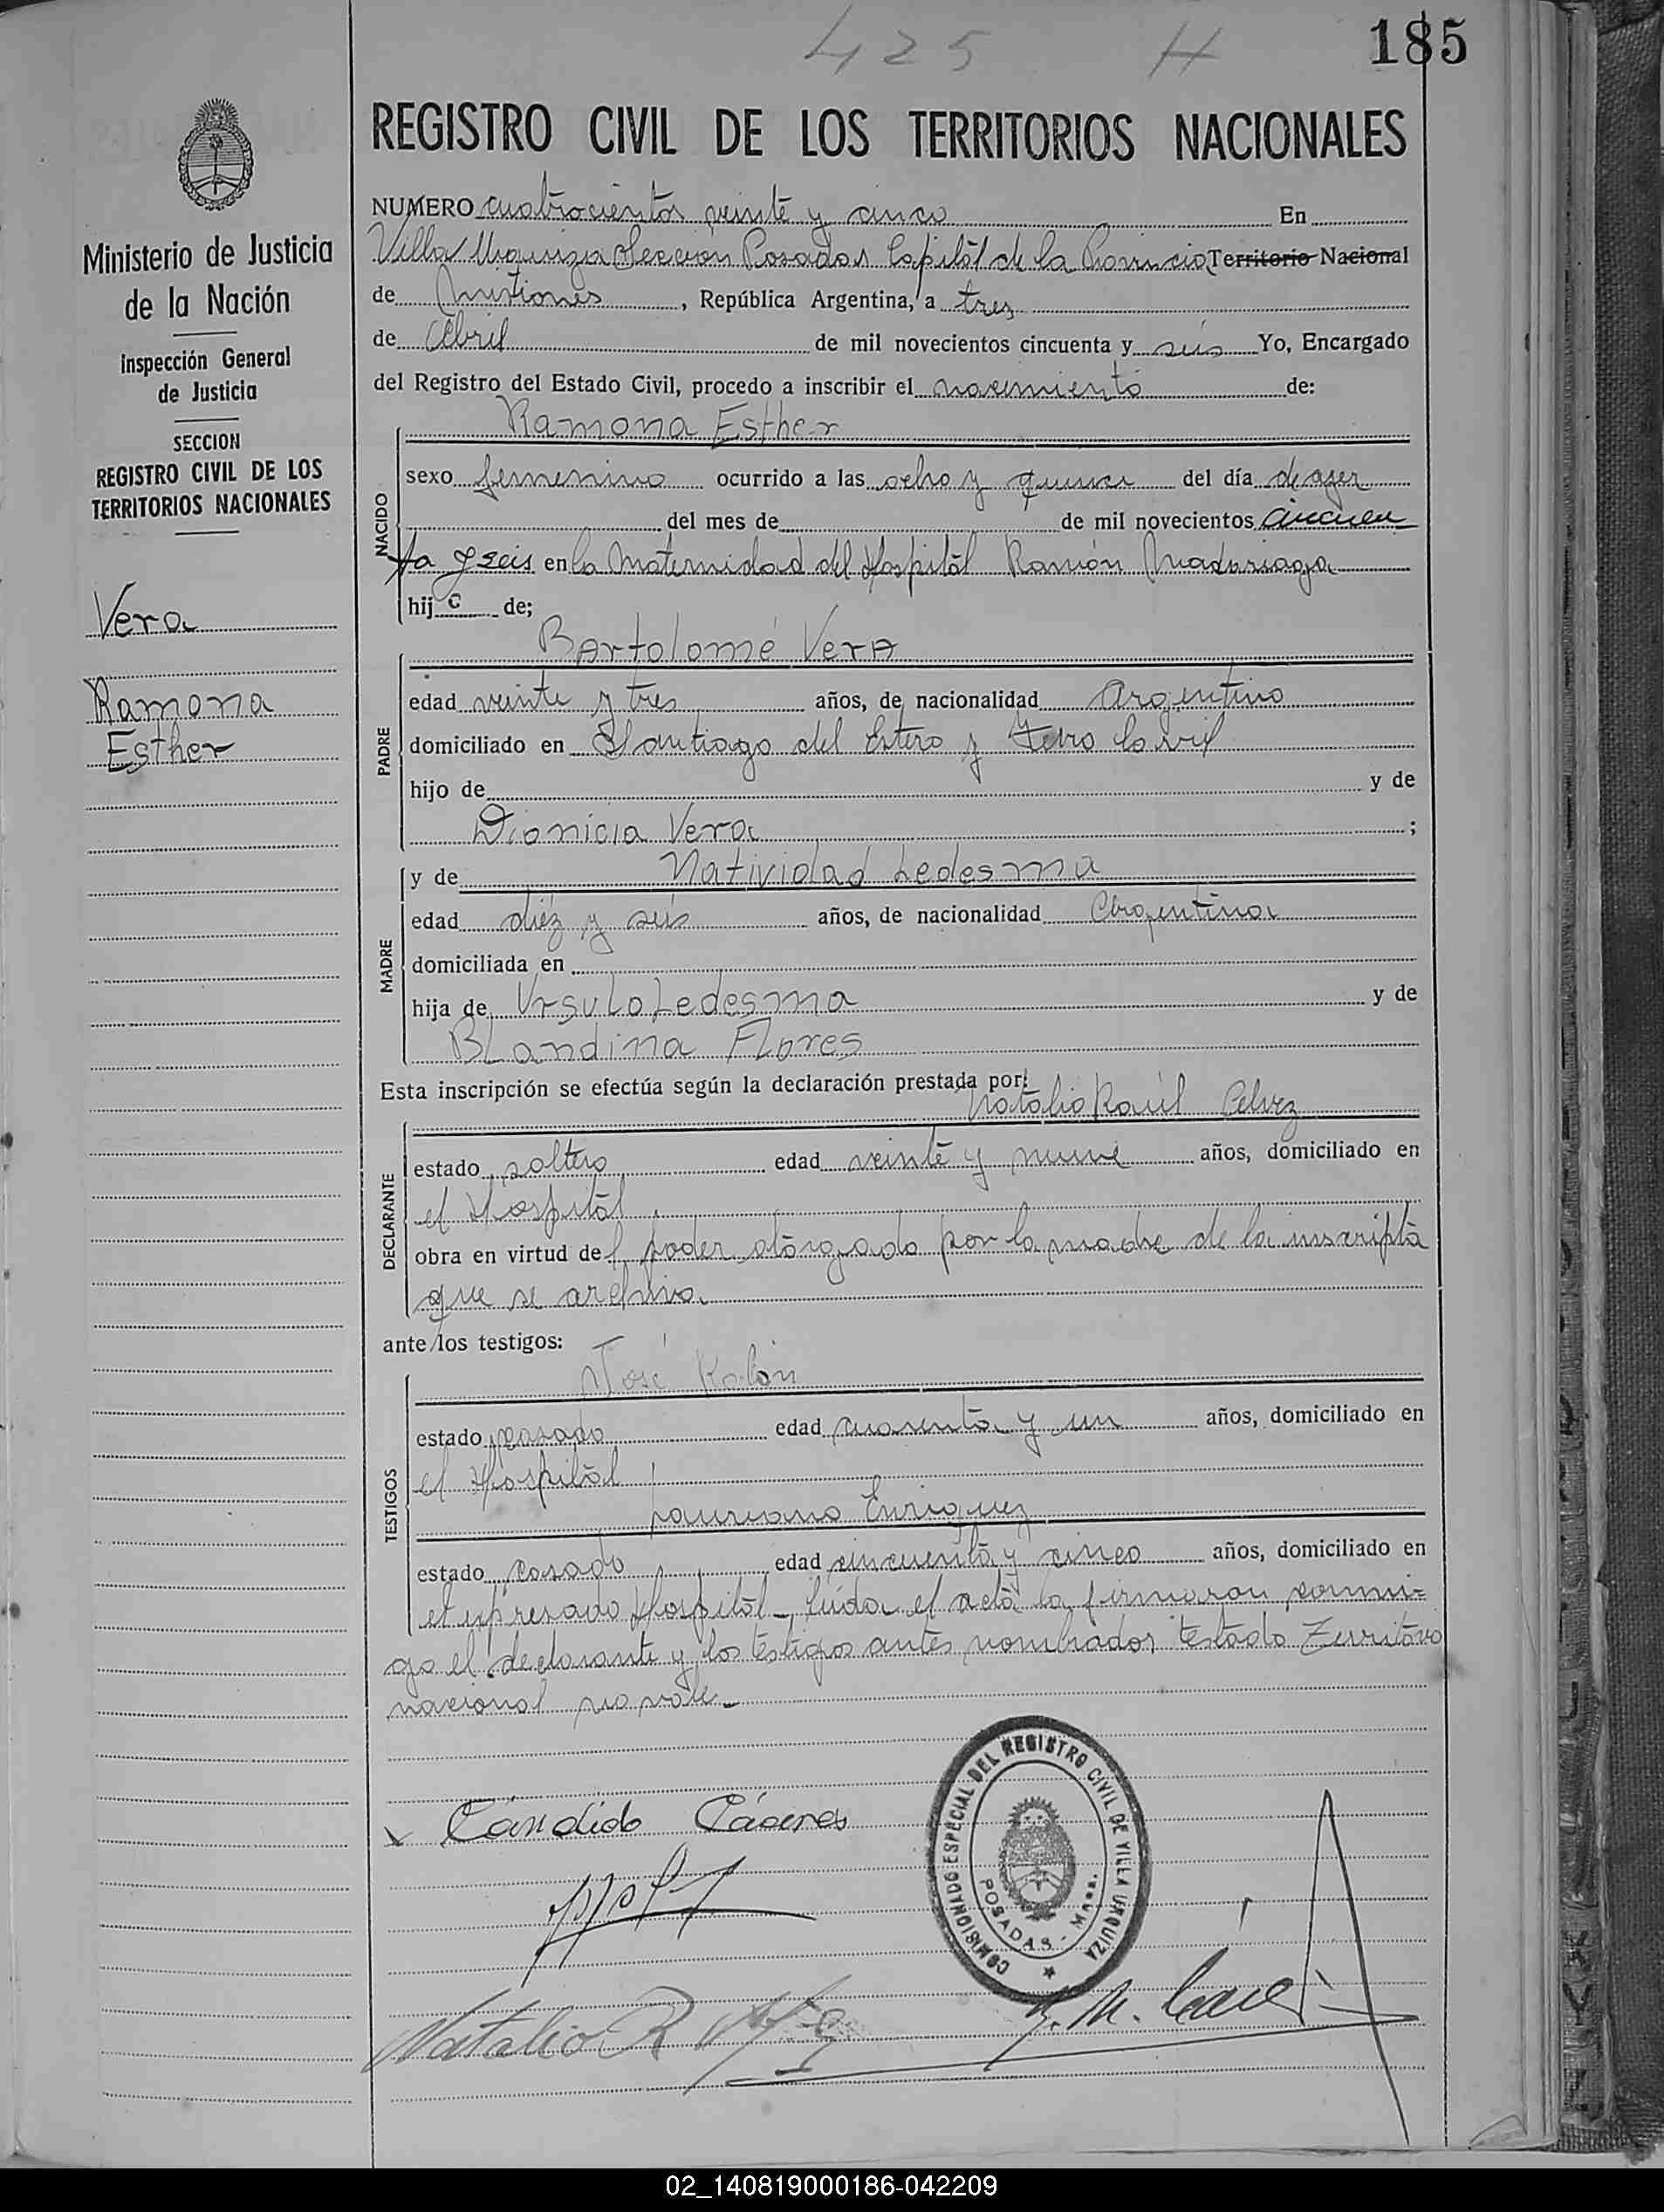 425 H 185
REGISTRO CIVIL DE LOS TERRITORIOS NACIONALES
Ministerio de Justicia
de la Nación
Inspección General
de Justicia
SECCION
REGISTRO CIVIL DE LOS
TERRITORIOS NACIONALES
Vera
Ramona
Esther
NUMERO cuatrocientos veinte y cinco En
Villa Urquiza Sección Posadas Capital de la Provincia Territorio Nacional
de Misiones, República Argentina, a tres
de Abril de mil novecientos cincuenta y seis Yo, Encargado
del Registro del Estado Civil, procedo a inscribir el nacimiento de:
Ramona Esther
NACIDO
sexo femenino ocurrido a las ocho y quince del día de ayer
del mes de de mil novecientos cincuen
ta y seis en la Maternidad del Hospital Ramón Madariaga
hija de;
Bartolomé Vera
PADRE
edad veinte y tres años, de nacionalidad Argentino
domiciliado en Santiago del Estero y Ferro Carril
hijo de y de
Dionicia Vera ;
y de Natividad Ledesma
MADRE
edad diez y seis años, de nacionalidad Argentina
domiciliada en
hija de Ursulo Ledesma y de
Blandina Flores
Esta inscripción se efectúa según la declaración prestada por:
Natalio Raúl
DECLARANTE
estado soltero edad veinte y nueve años, domiciliado en
el Hospital
obra en virtud del poder otorgado por la madre de la inscripta
que se archiva.
ante los testigos:
José
TESTIGOS
estado casado edad cuarenta y un años, domiciliado en
el Hospital
Laureano Enriquez
estado casado edad cincuenta y cinco años, domiciliado en
el expresado Hospital - Leída el acta la firmaron conmi=
go el declarante y los testigos antes nombrados, testado Territorio
nacional no vale.-
x Cándido Cáceres
COMISIONADO ESPECIAL DEL REGISTRO CIVIL DE VILLA URQUIZA
POSADAS - Mnes.
Natalio R
02_140819000186-042209